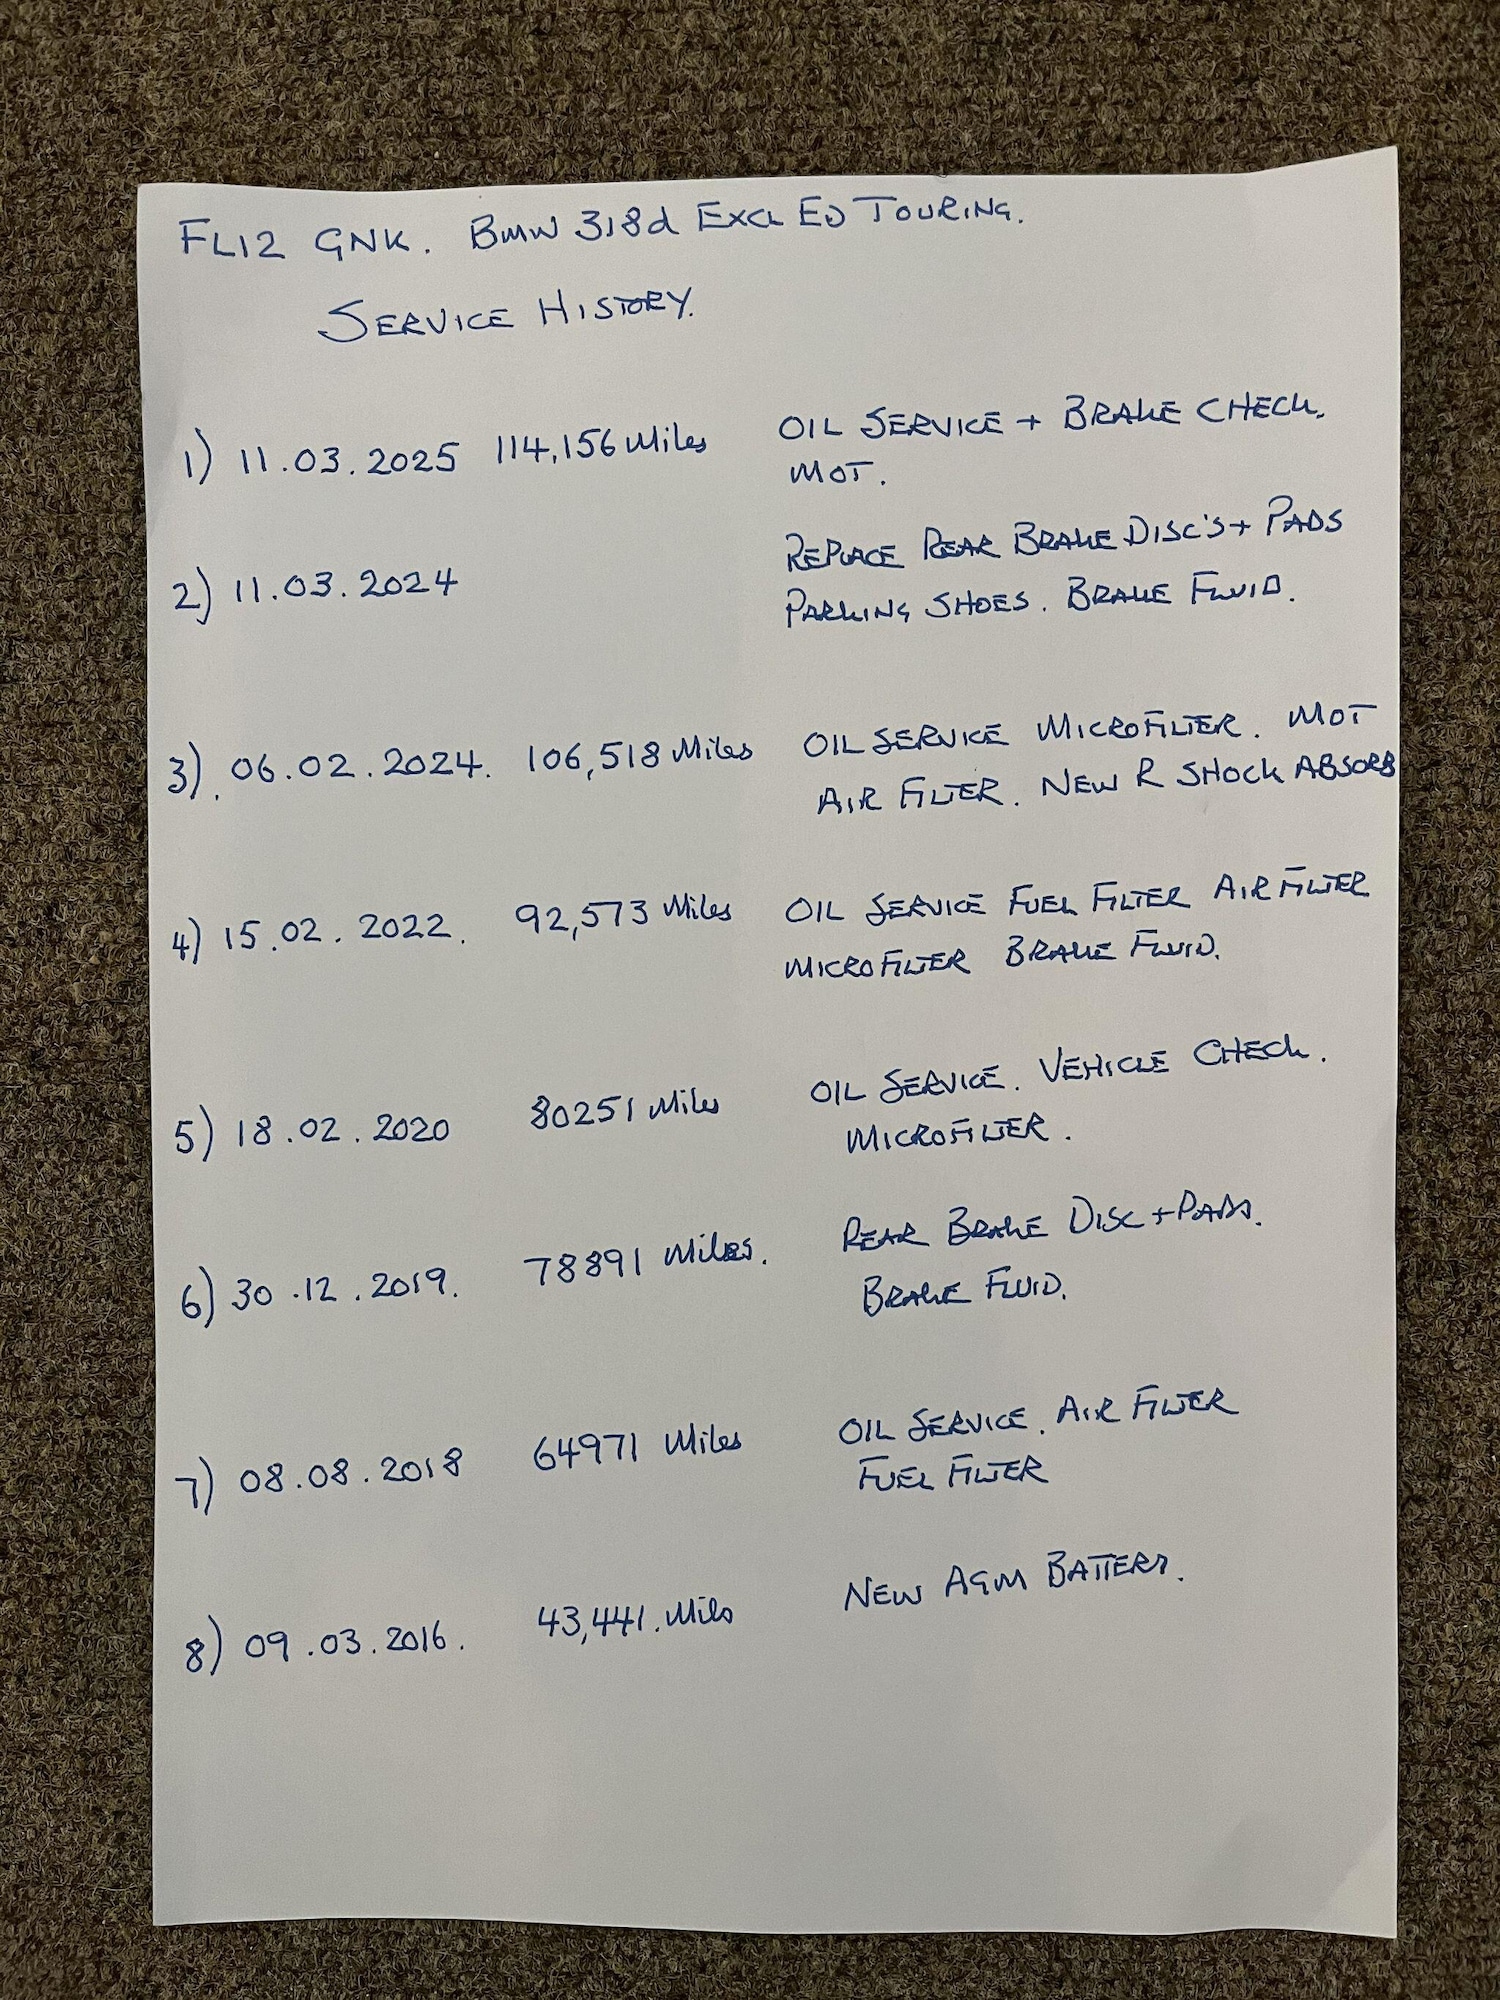 FL12 GNK. BMW 318d EXCL ED TOURING.
SERVICE HISTORY.
1) 11.03.2025 114,156 Miles OIL SERVICE + BRAKE CHECK.
MOT.
REPLACE REAR BRAKE DISC'S + PADS
2) 11.03.2024
PARKING SHOES. BRAKE FLUID.
3). 06.02.2024. 106,518 Miles OIL SERVICE MICROFILTER. MOT
AIR FILTER. NEW R SHOCK ABSORB
4) 15.02.2022. 92,573 Miles OIL SERVICE FUEL FILTER AIR FILTER
MICROFILTER BRAKE FLUID.
5) 18.02.2020 80251 Miles OIL SERVICE. VEHICLE CHECK.
MICROFILTER.
6) 30.12.2019. 78891 Miles. REAR BRAKE DISC + PADS.
BRAKE FLUID.
7) 08.08.2018 64971 Miles OIL SERVICE. AIR FILTER
FUEL FILTER
8) 09.03.2016. 43,441. Miles NEW AGM BATTERY.